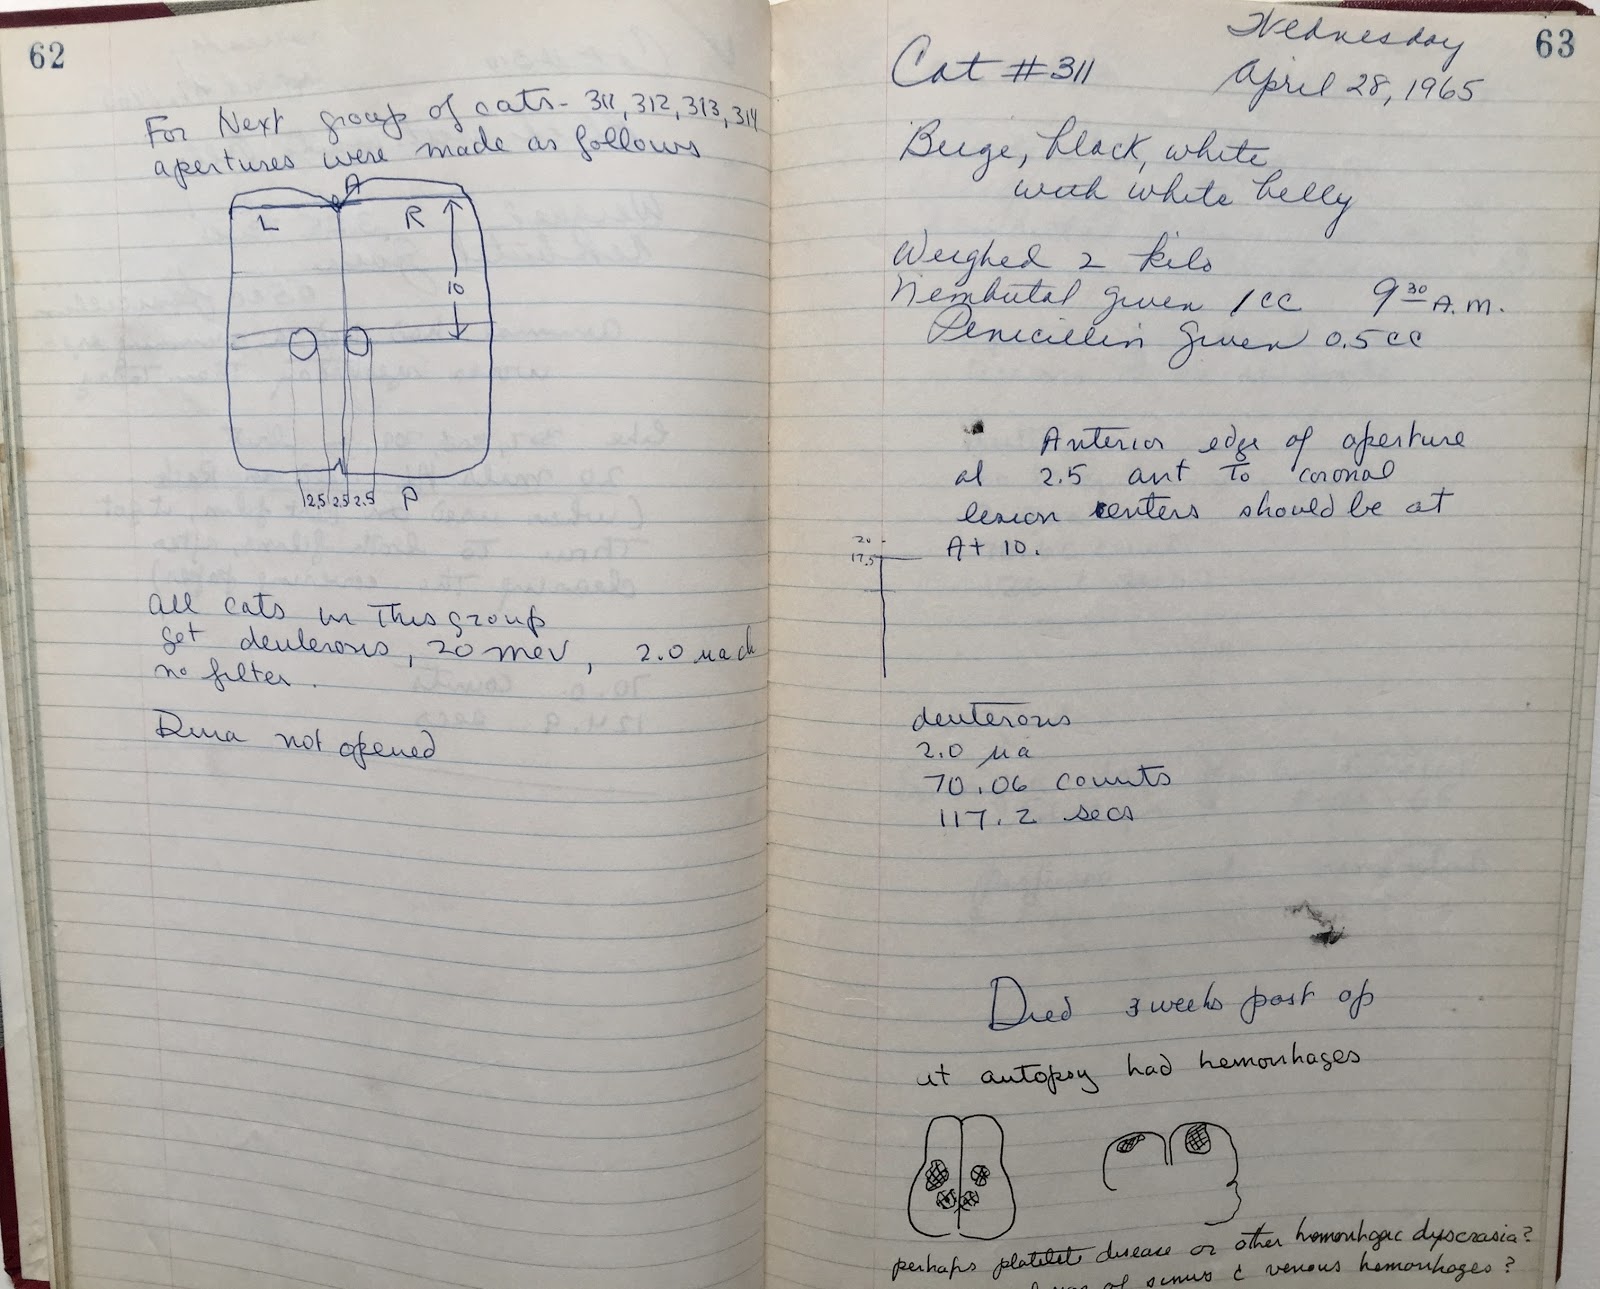 62
For Next group of cats - 311, 312, 313, 314
apertures were made as follows
A
L R
10
2.5 2.5 2.5 P
All cats in this group
get deuterons, 20 mev, 2.0 ua
no filter.
Dura not opened
63
Wednesday
Cat #311 April 28, 1965
Beige, black, white
with white belly
Weighed 2 kilo
Nembutal given 1 cc 9 30 A.M.
Penicillin given 0.5 cc
Anterior edge of aperture
at 2.5 ant to coronal
lesion centers should be at
A+ 10.
20
17.5
deuterons
2.0 ua
70.06 counts
117.2 secs
Died 3 weeks post op
at autopsy had hemorrhages
perhaps platelet disease or other hemorrhagic dyscrasia?
of sinus c venous hemorrhages?